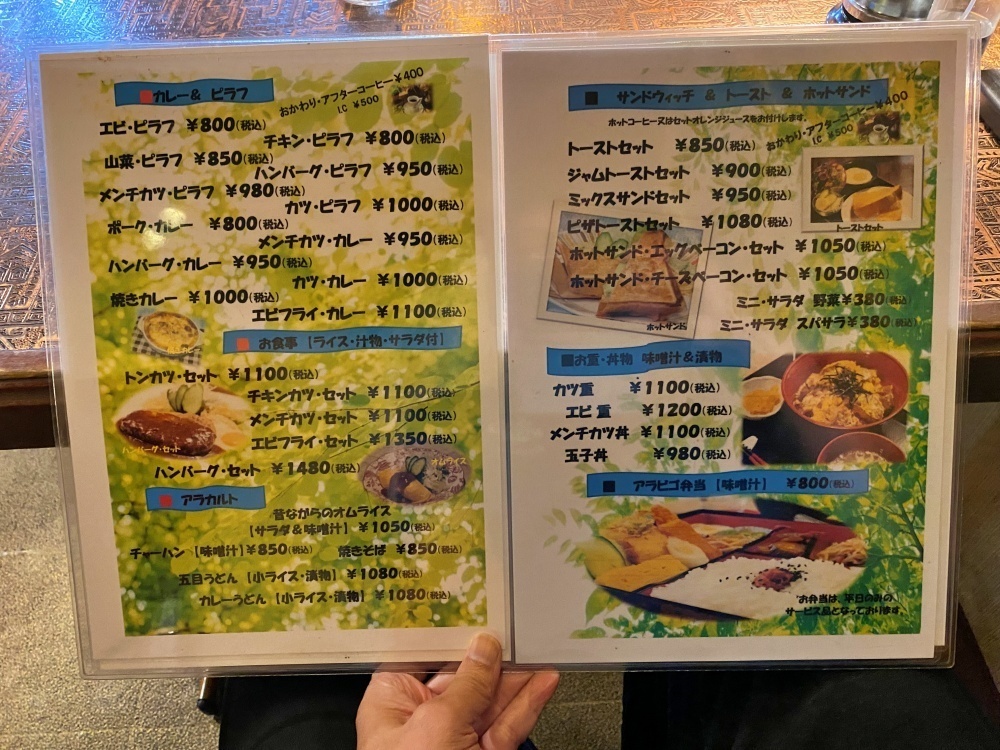 ■カレー＆ ピラフ
おかわり・アフターコーヒー￥400
I.C ￥500
エビ・ピラフ ￥800(税込)
チキン・ピラフ ￥800(税込)
山菜・ピラフ ￥850(税込)
ハンバーグ・ピラフ ￥950(税込)
メンチカツ・ピラフ ￥980(税込)
カツ・ピラフ ￥1000(税込)
ポーク・カレー ￥800(税込)
メンチカツ・カレー ￥950(税込)
ハンバーグ・カレー ￥950(税込)
カツ・カレー ￥1000(税込)
焼きカレー ￥1000(税込)
エビフライ・カレー ￥1100(税込)
■ お食事 【ライス・汁物・サラダ付】
トンカツ・セット ￥1100(税込)
チキンカツ・セット ￥1100(税込)
メンチカツ・セット ￥1100(税込)
エビフライ・セット ￥1350(税込)
ハンバーグ・セット
ハンバーグ・セット ￥1480(税込)
オムライス
■ アラカルト
昔ながらのオムライス
【サラダ＆味噌汁】 ￥1050(税込)
チャーハン【味噌汁】￥850(税込) 焼きそば ￥850(税込)
五目うどん【小ライス・漬物】 ￥1080(税込)
カレーうどん【小ライス・漬物】 ￥1080(税込)
■ サンドウィッチ ＆ トースト ＆ ホットサンド
ホットコーヒー又はセットオレンジジュースをお付けします。
おかわり・アフターコーヒー￥400
IC ￥500
トーストセット ￥850(税込)
ジャムトーストセット ￥900(税込)
ミックスサンドセット ￥950(税込)
トーストセット
ピザトーストセット ￥1080(税込)
ホットサンド・エッグベーコン・セット ￥1050(税込)
ホットサンド・チーズベーコン・セット ￥1050(税込)
ミニ・サラダ 野菜￥380(税込)
ミニ・サラダ スパサラ￥380(税込)
ホットサンド
■お重・丼物 味噌汁＆漬物
カツ重 ￥1100(税込)
エビ重 ￥1200(税込)
メンチカツ丼 ￥1100(税込)
玉子丼 ￥980(税込)
■ アラビゴ弁当【味噌汁】 ￥800(税込)
*お弁当は、平日のみの
サービス品となっております。